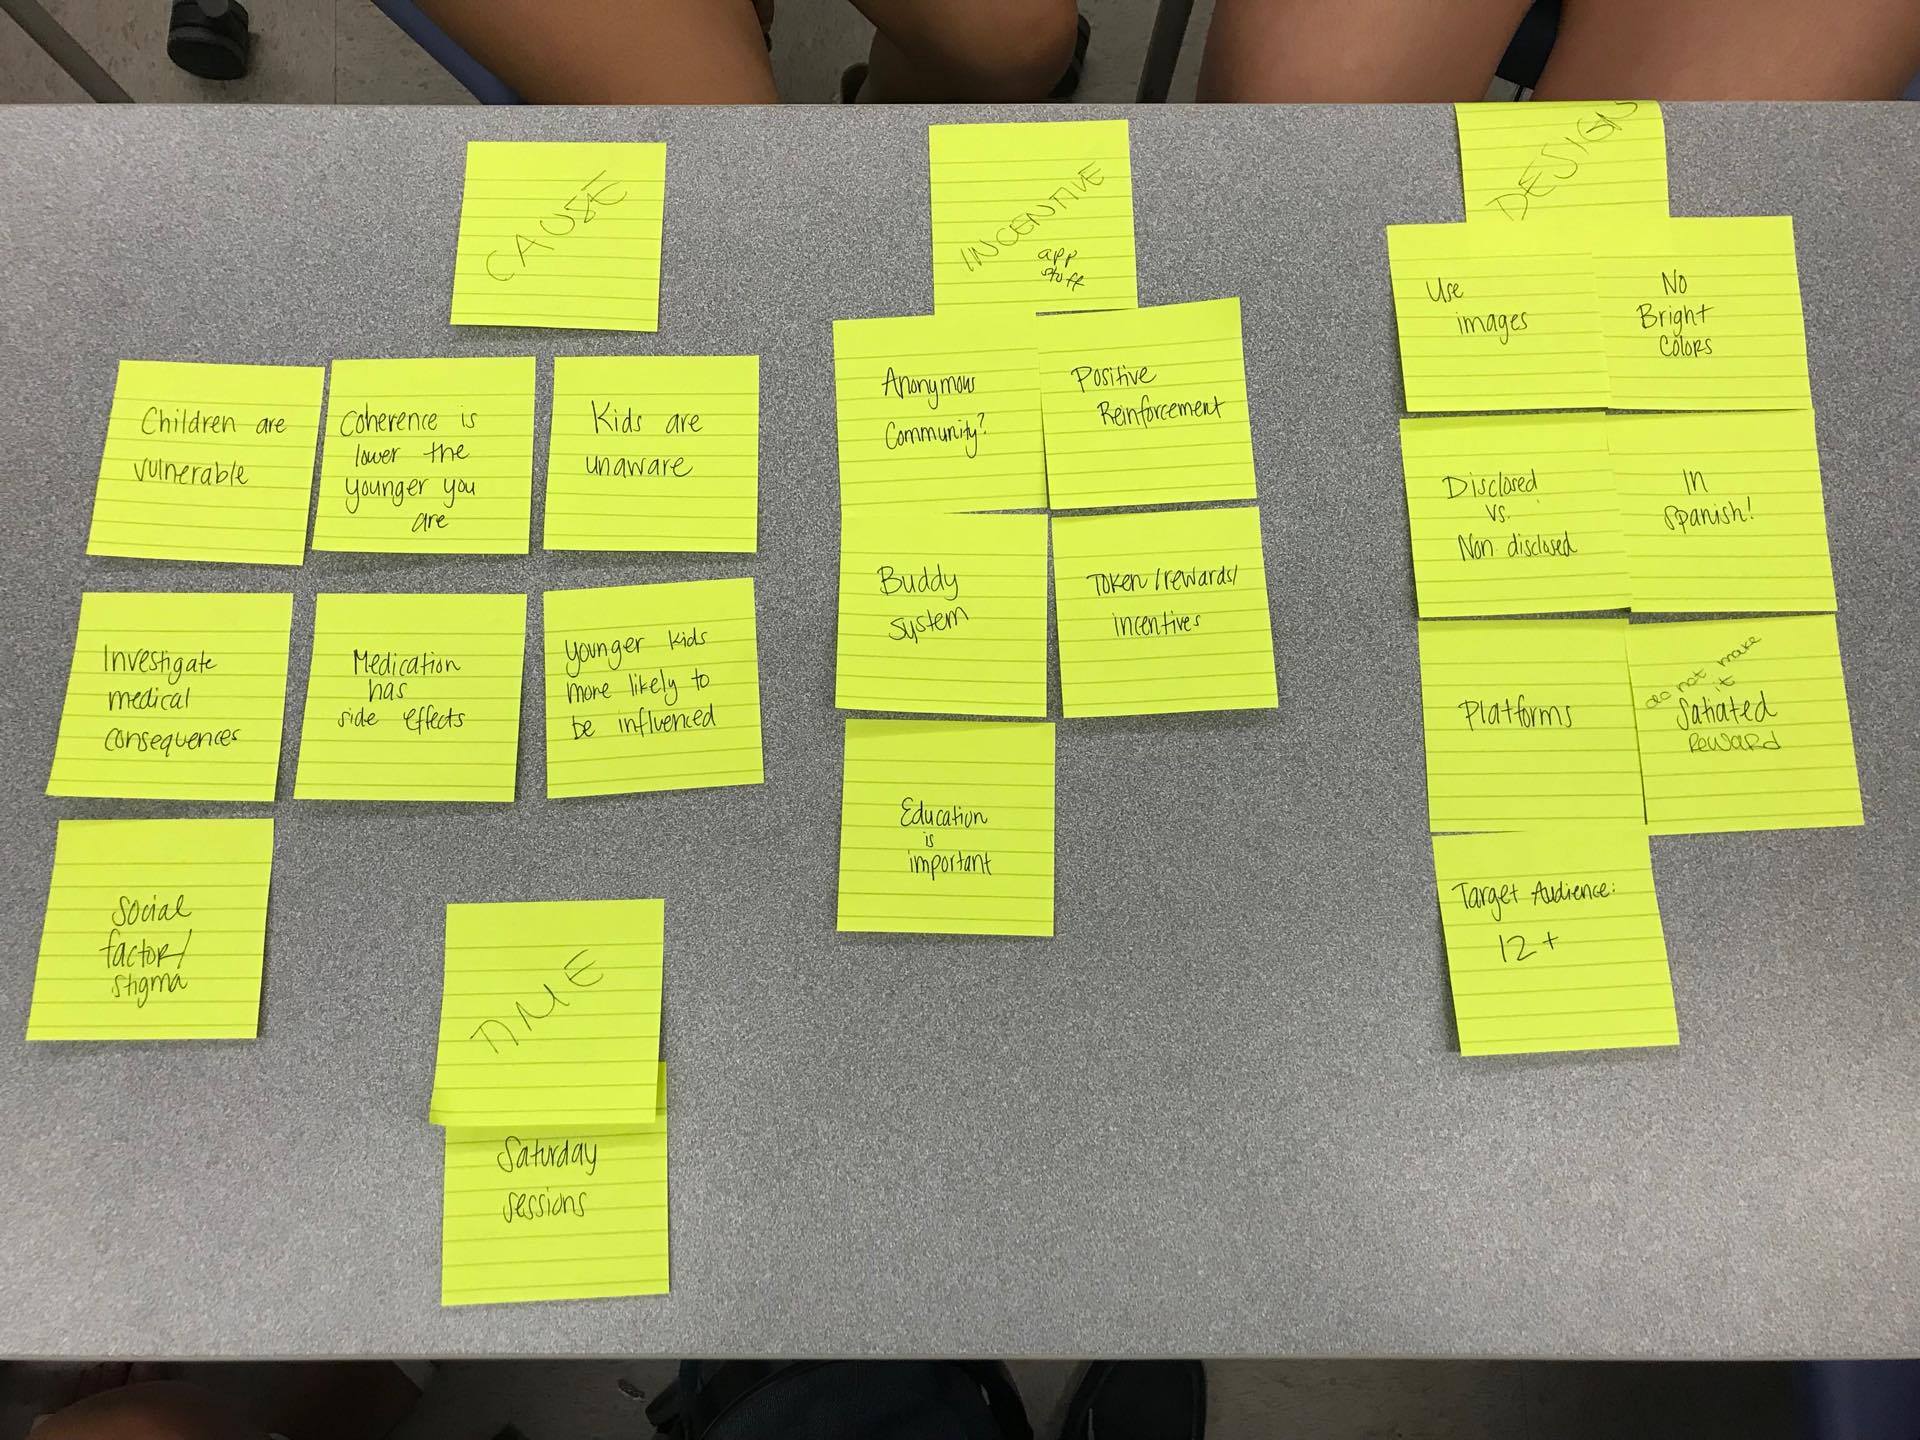 CAUSE
Children are
vulnerable
Coherence is
lower the
younger you
are
Kids are
unaware
Investigate
medical
consequences
Medication
has
side effects
younger kids
more likely to
be influenced
Social
factor/
stigma
TIME
Saturday
sessions
INCENTIVE
app
stuff
Anonymous
Community?
Positive
Reinforcement
Buddy
system
Token/rewards/
incentives
Education
is
important
DESIGN
Use
images
No
Bright
Colors
Disclosed
vs.
Non disclosed
In
Spanish!
Platforms
do not make
it
Satiated
Reward
Target Audience:
12+